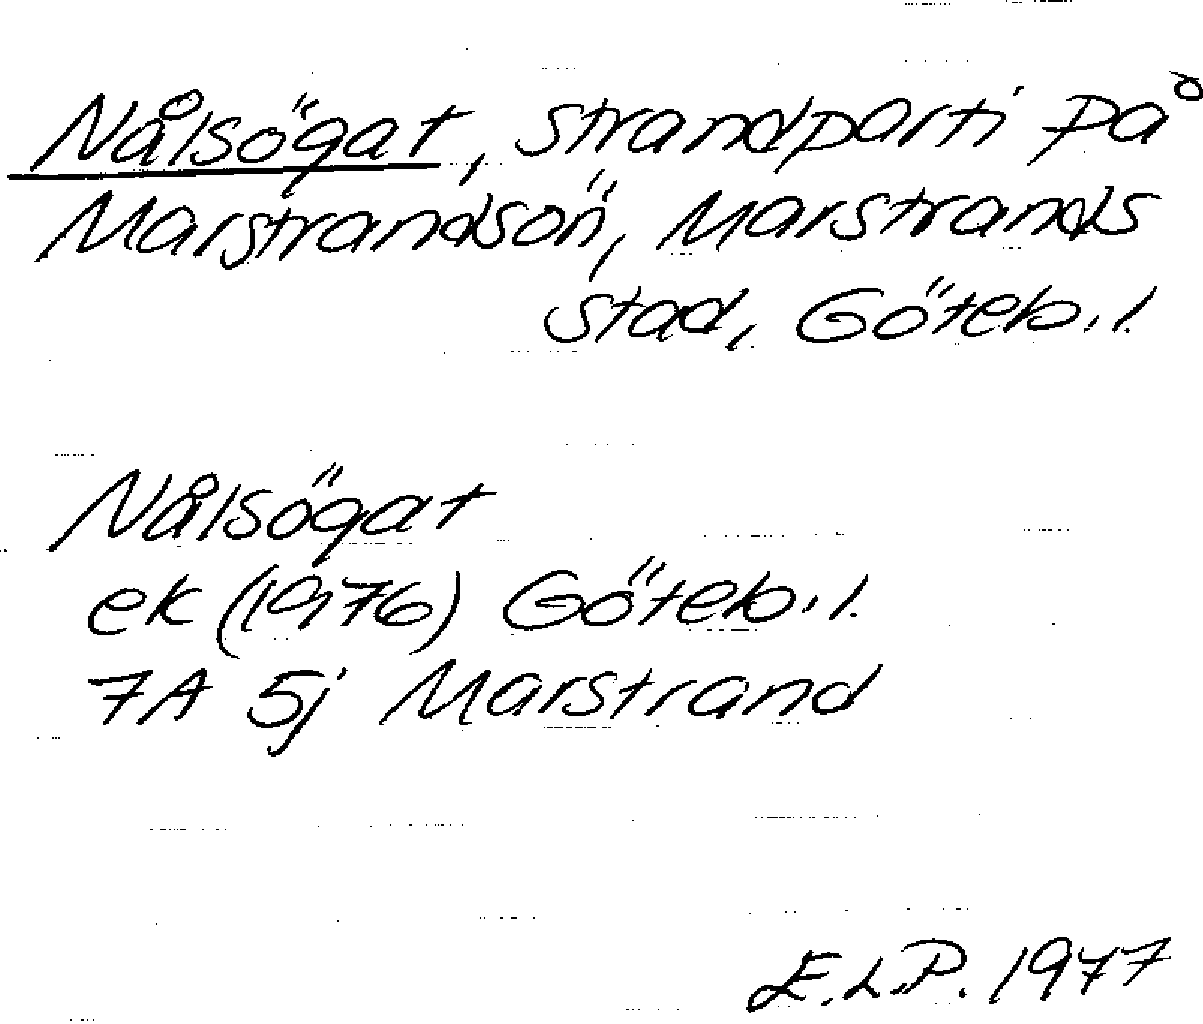 Nålsögat, strandparti på
Marstrandsön, Marstrands
stad, Göteb.l.
Nålsögat
ek (1976) Göteb.l.
7A 5j Marstrand
E.L.P. 1977